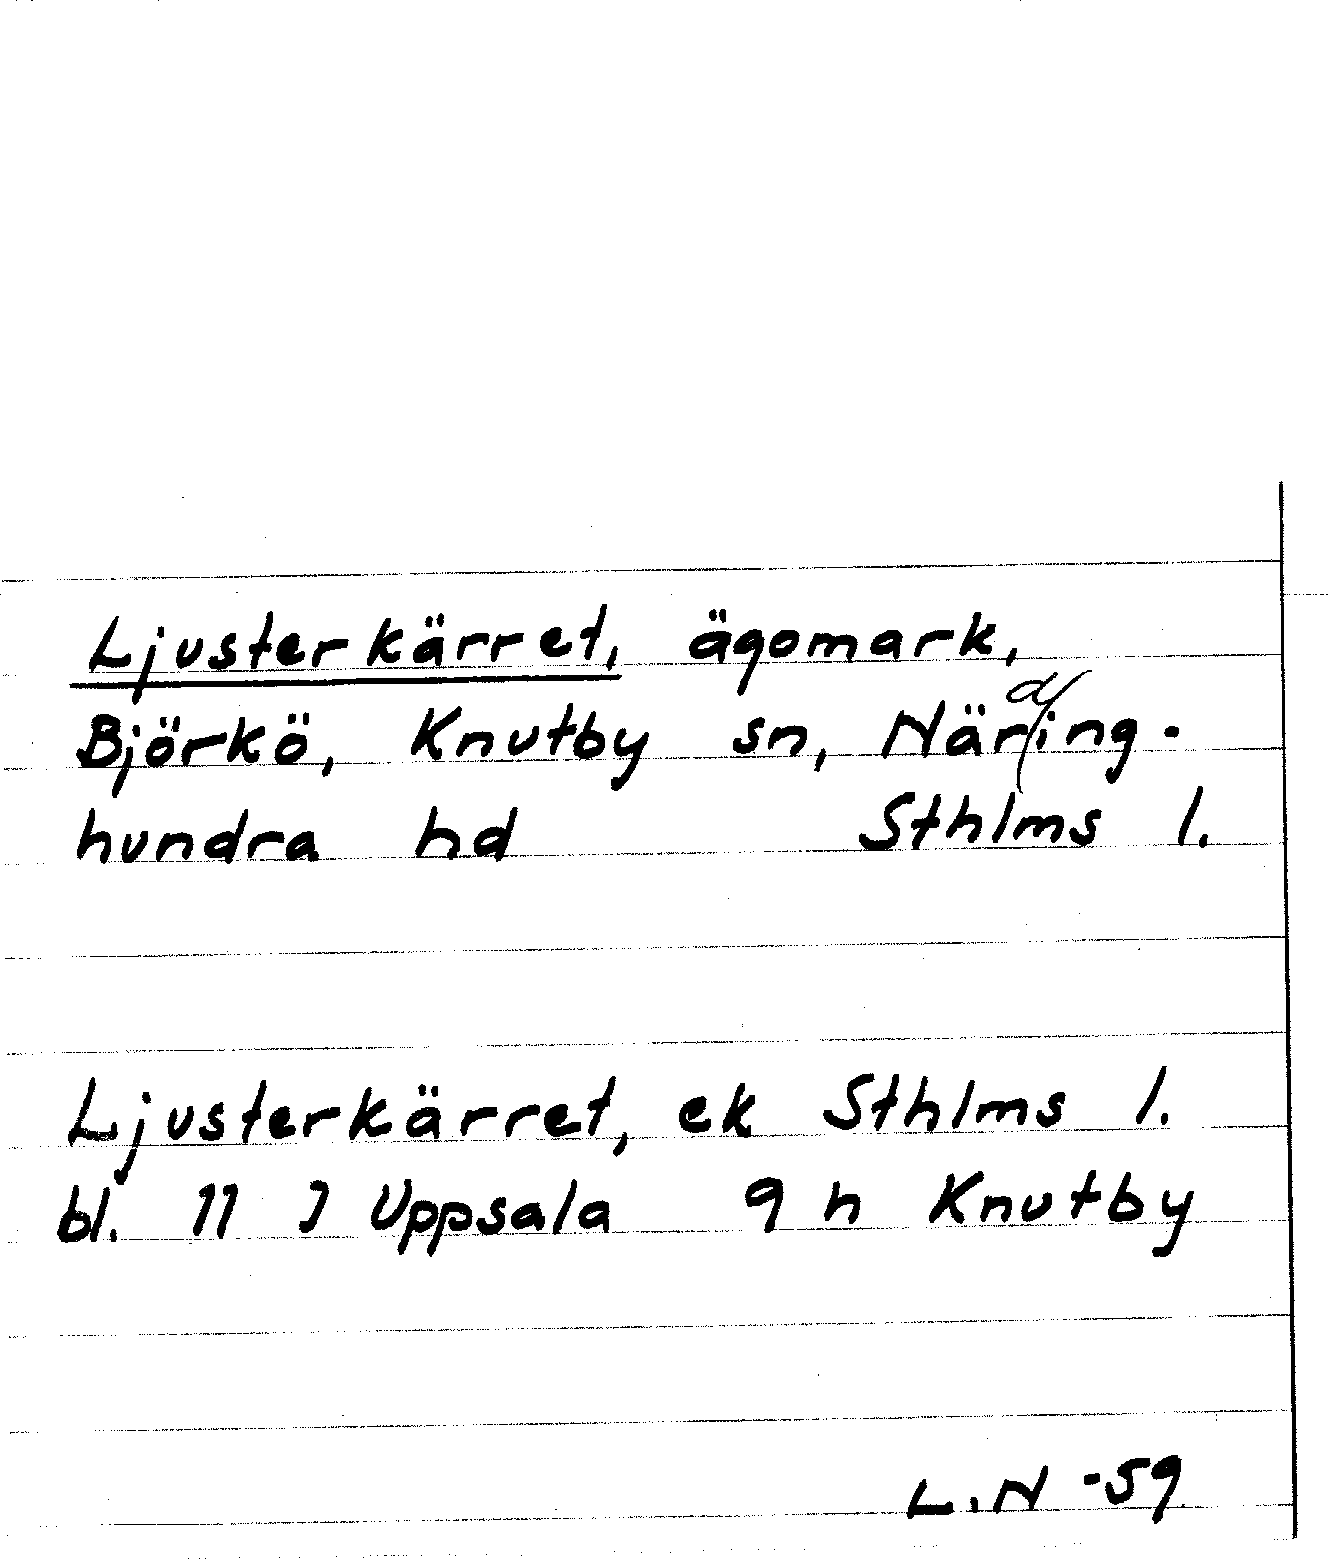 Ljusterkärret, ägomark,
Björkö, Knutby sn, Närding-
hundra hd Sthlms l.
Ljusterkärret, ek Sthlms l.
bl. 11 J Uppsala 9 h Knutby
L.N -59